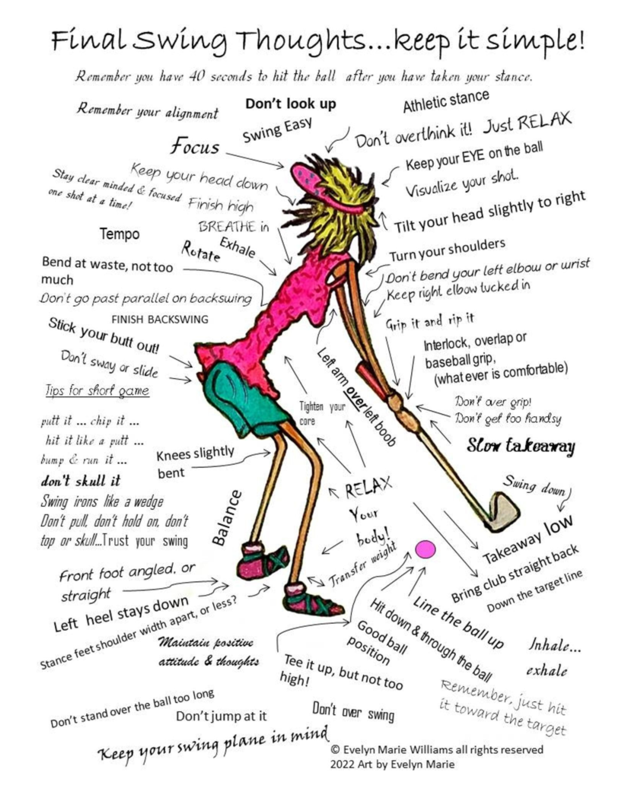 Final Swing Thoughts...keep it simple!
Remember you have 40 seconds to hit the ball after you have taken your stance.
Remember your alignment
Don't look up
Athletic stance
Swing Easy
Don't overthink it! Just RELAX
Focus
Keep your EYE on the ball
Keep your head down
Visualize your shot.
Stay clear minded & focused
one shot at a time!
Finish high
Tilt your head slightly to right
BREATHE in
Tempo
Exhale
Rotate
Turn your shoulders
Bend at waste, not too
much
Don't bend your left elbow or wrist
Keep right elbow tucked in
Don't go past parallel on backswing
FINISH BACKSWING
Grip it and rip it
Stick your butt out!
Interlock, overlap or
baseball grip,
(what ever is comfortable)
Don't sway or slide
Left arm over left boob
Tips for short game
Tighten your
core
Don't over grip!
Don't get too handsy
putt it ... chip it ...
hit it like a putt ...
bump & run it ...
don't skull it
Slow takeaway
Knees slightly
bent
Swing irons like a wedge
Don't pull, don't hold on, don't
top or skull...Trust your swing
RELAX
Your
body!
Swing down
Balance
Takeaway low
Transfer weight
Bring club straight back
Down the target line
Front foot angled, or
straight
Left heel stays down
Stance feet shoulder width apart, or less?
Line the ball up
Hit down & through the ball
Good ball
position
Maintain positive
attitude & thoughts
Inhale...
exhale
Tee it up, but not too
high!
Remember, just hit
it toward the target
Don't stand over the ball too long
Don't jump at it
Don't over swing
Keep your swing plane in mind
© Evelyn Marie Williams all rights reserved
2022 Art by Evelyn Marie